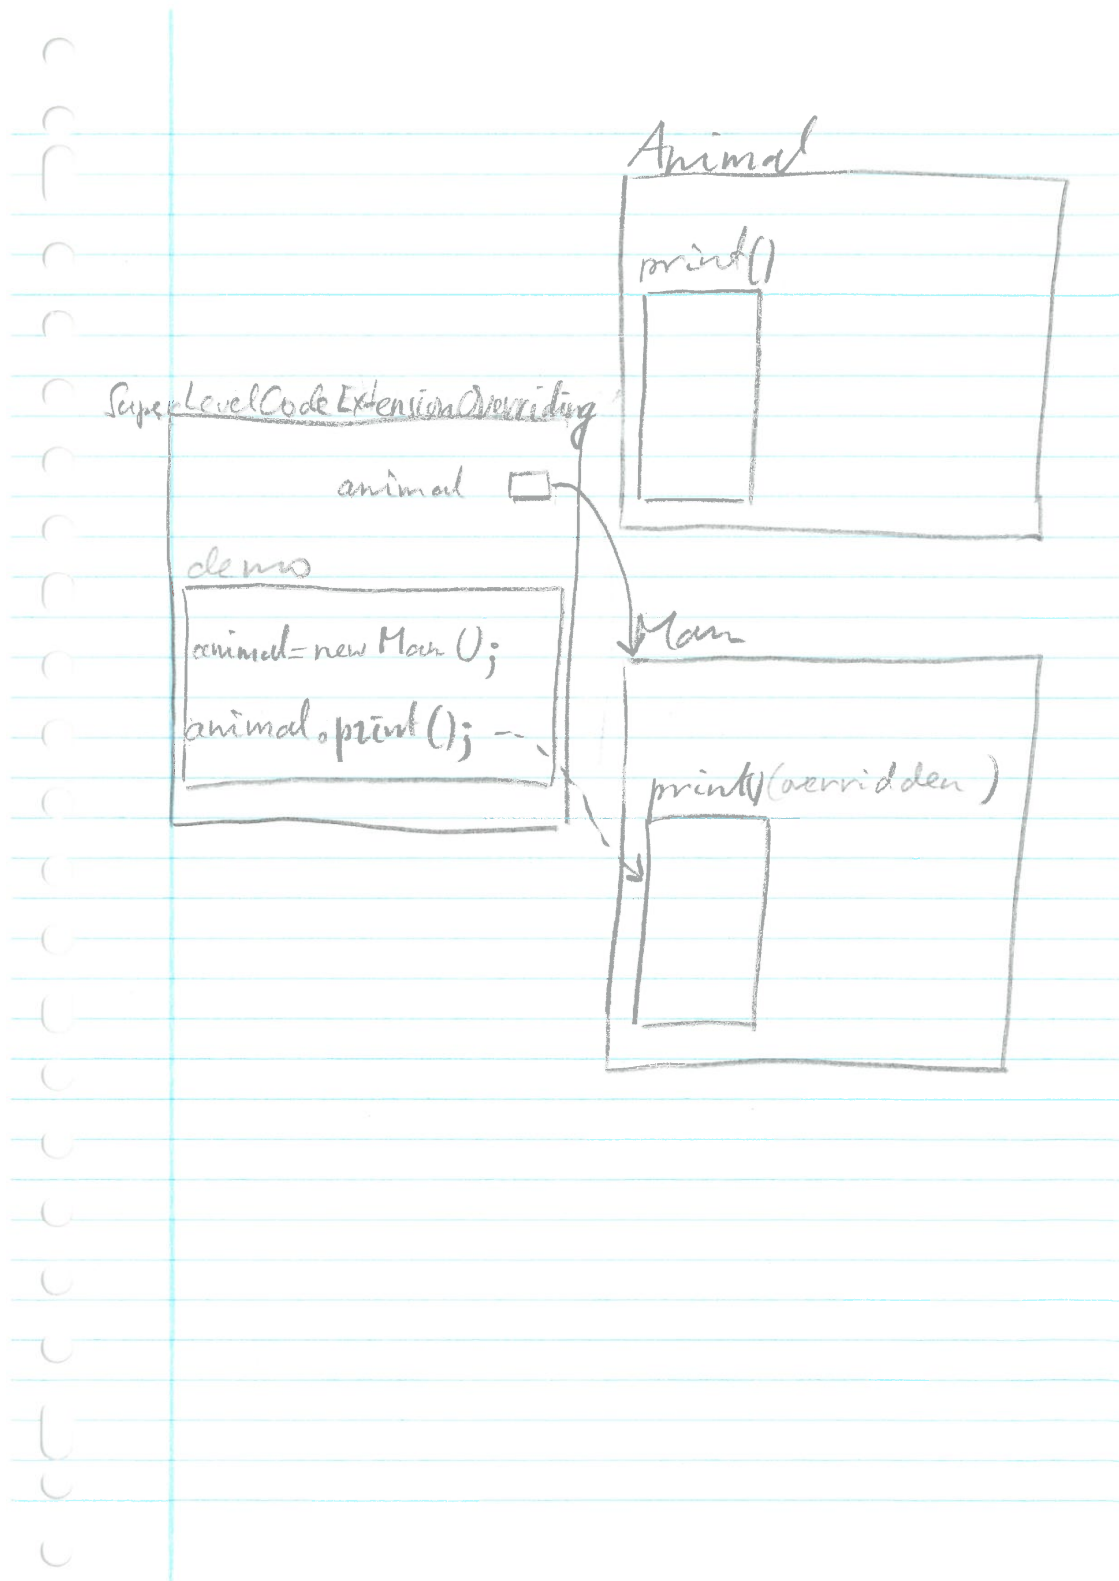 Animal
print()
SuperLevelCodeExtensionOverriding
animal
demo
animal=new Man();
animal.print();
Man
print()(overridden)